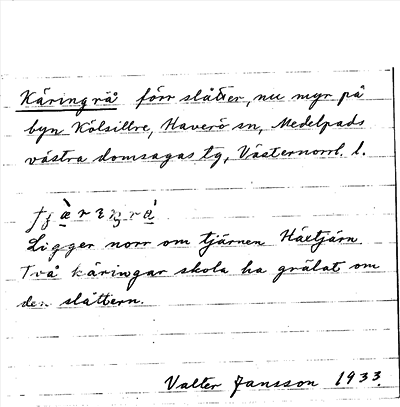 Käringrå förr slåtter, nu myr på
byn Kölsillre, Haverö sn, Medelpads
västra domsagas tg, Västernorrl. l.
Ligger norr om tjärnen Häxtjärn.
Två käringar skola ha grälat om
den slåttern.
Valter Jansson 1933.